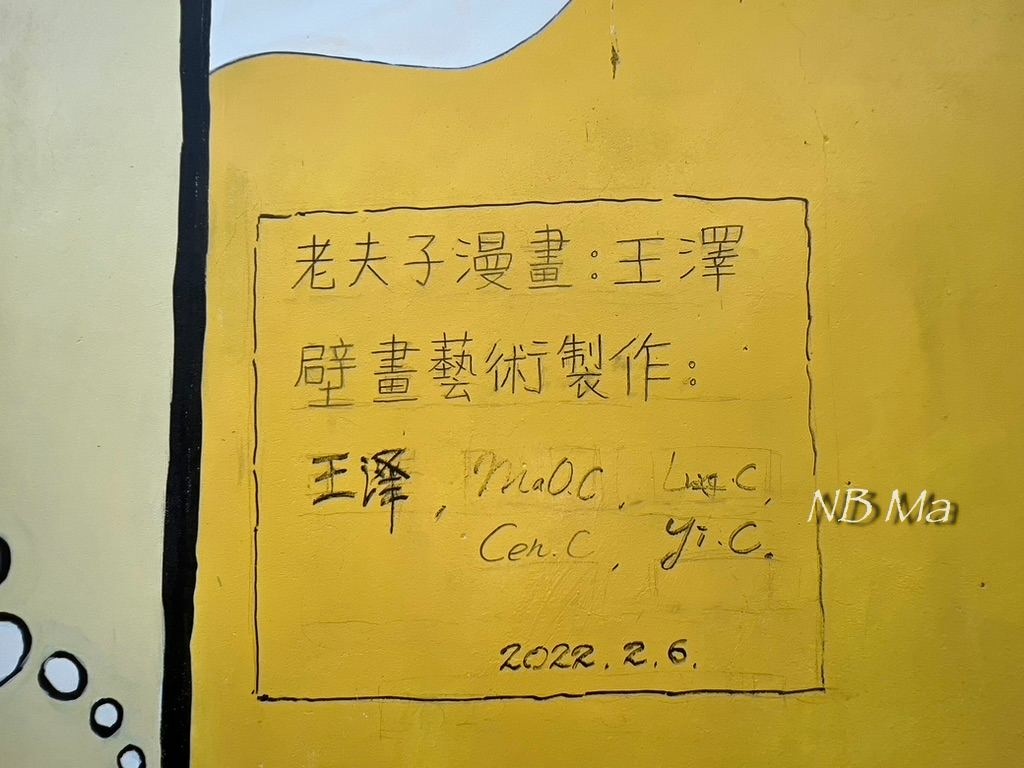 老夫子漫畫:王澤
壁畫藝術製作:
王泽, MaO.C, C,
Cen.C, Yi.C.
2022.2.6.
NB Ma